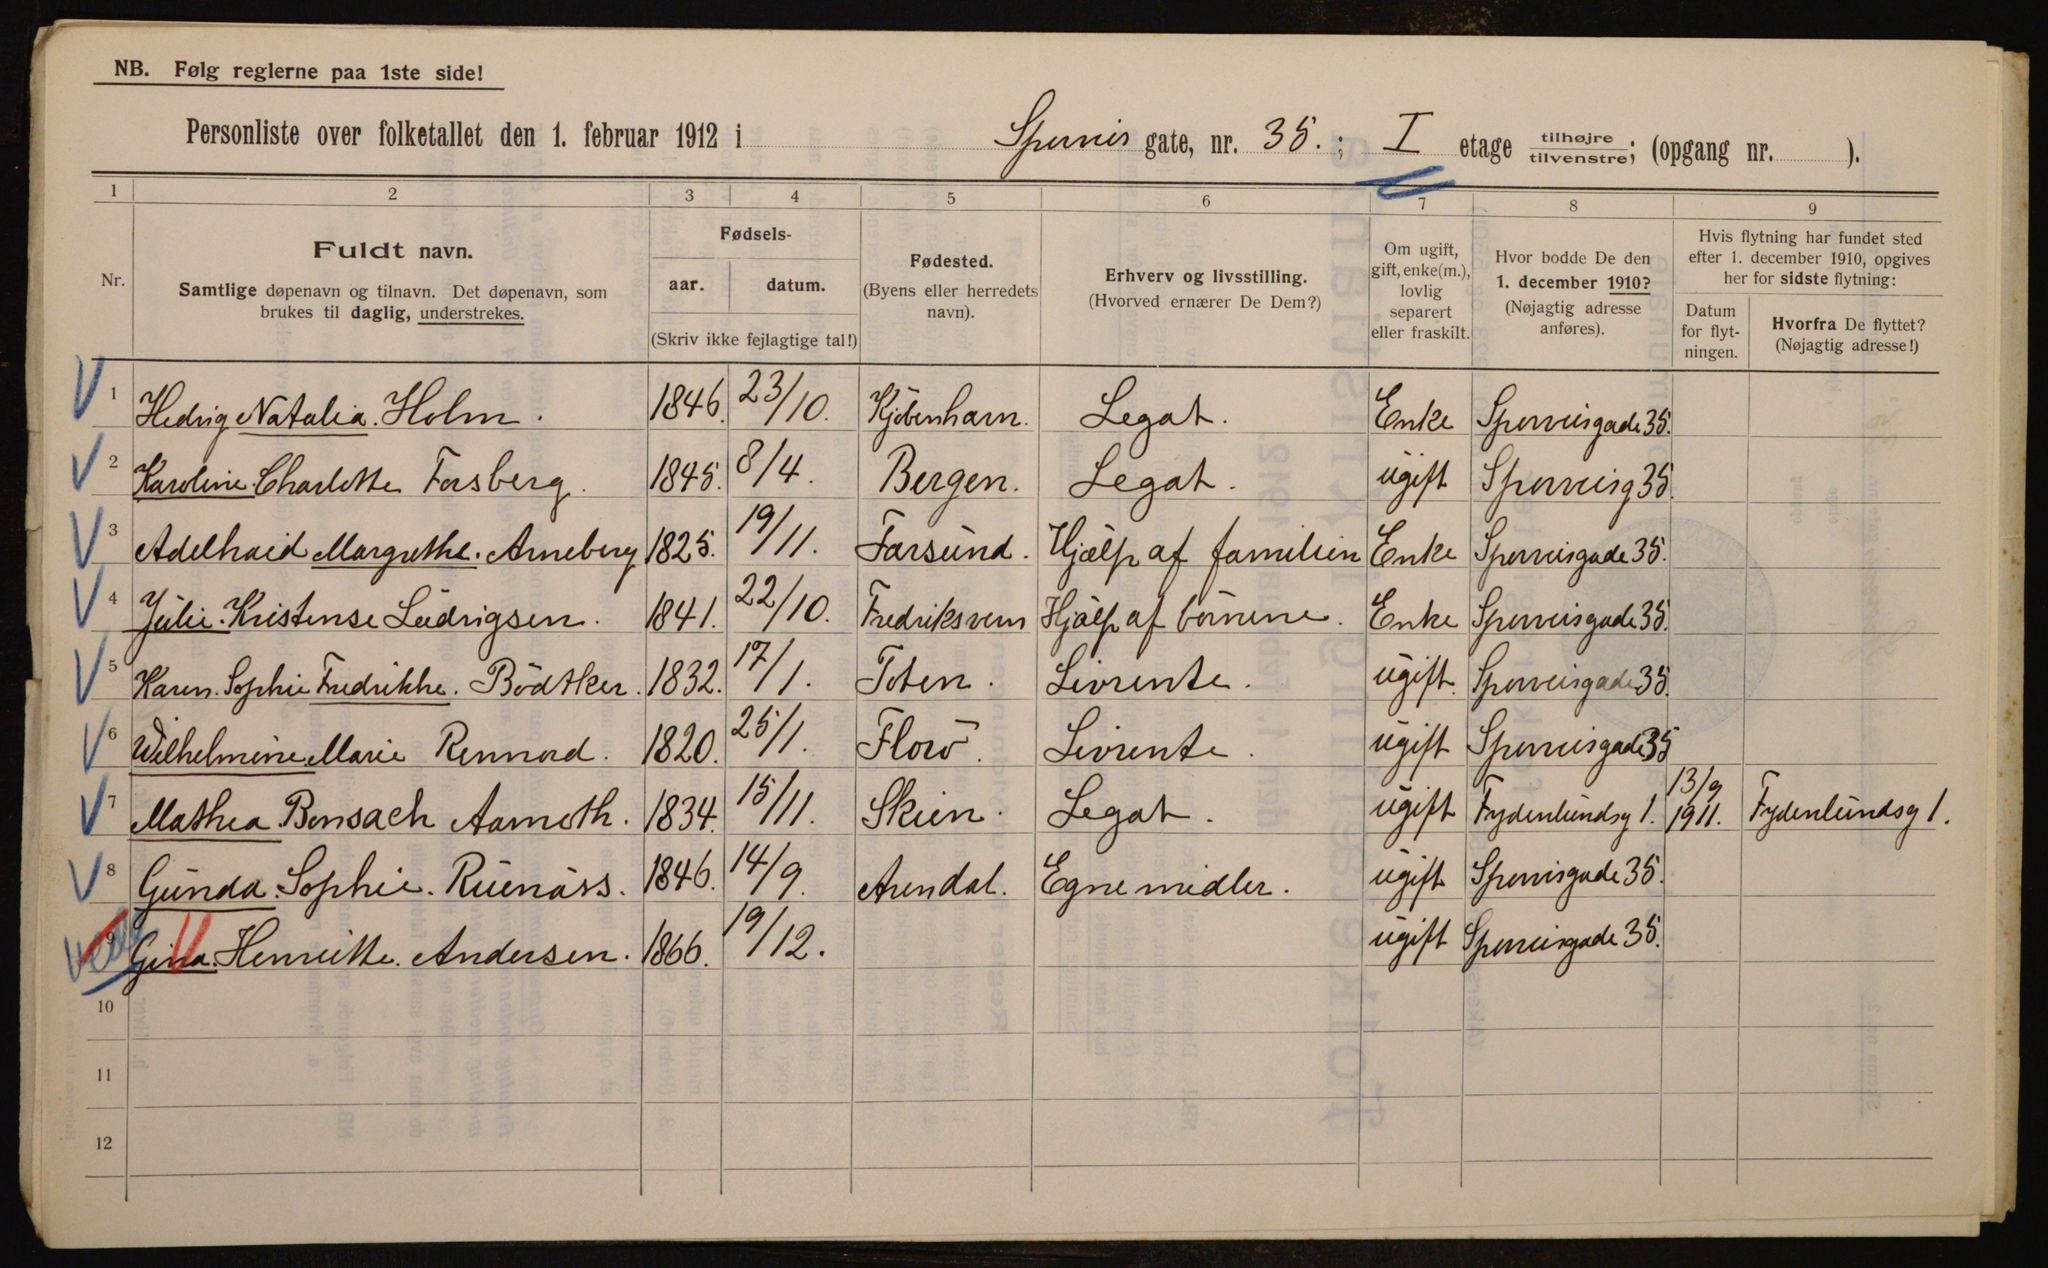 NB. Følg reglerne paa 1ste side!
Personliste over folketallet den 1. februar 1912 i Sporveis gate, nr. 35.; I etage tilhøjre/tilvenstre; (opgang nr. ).
1 2 3 4 5 6 7 8 9
Nr.
Fuldt navn.
Samtlige døpenavn og tilnavn. Det døpenavn, som
brukes til daglig, understrekes.
Fødsels-
aar. datum.
(Skriv ikke fejlagtige tal!)
Fødested.
(Byens eller herredets
navn).
Erhverv og livsstilling.
(Hvorved ernærer De Dem?)
Om ugift,
gift, enke(m.),
lovlig
separert
eller fraskilt.
Hvor bodde De den
1. december 1910?
(Nøjagtig adresse
anføres).
Hvis flytning har fundet sted
efter 1. december 1910, opgives
her for sidste flytning:
Datum
for flyt-
ningen.
Hvorfra De flyttet?
(Nøjagtig adresse!)
1 Hedvig Natalia. Holm. 1846. 23/10. Kjöbenhavn. Legat. Enke Sporveisgade 35.
2 Karoline Charlotte Forsberg. 1845. 8/4. Bergen. Legat. ugift Sporveisg 35.
3 Adelhaid Margrethe. Arneberg 1825. 19/11. Farsund. Hjælp af familien Enke Sporveisgade 35.
4 Julie. Kristense Ludvigsen. 1841. 22/10. Fredriksvern Hjælp af börnene. Enke Sporveisgade 35.
5 Karen. Sophie Fredrikke. Bödtker. 1832. 17/1. Toten. Livrente. ugift. Sporveisgade 35.
6 Wilhelmine Marie Rennord. 1820. 25/1. Florö. Livrente. ugift Sporveisgade 35
7 Mathea Bensach Aamoth. 1834. 15/11. Skien. Legat. ugift Frydenlundsg 1. 13/9 1911. Frydenlundsg 1.
8 Gunda. Sophie. Ruenäss. 1846. 14/9. Arendal. Egne midler. ugift Sporveisgade 35.
9 Gina. Henriette. Andersen. 1866. 19/12. ugift Sporveisgade 35.
10
11
12